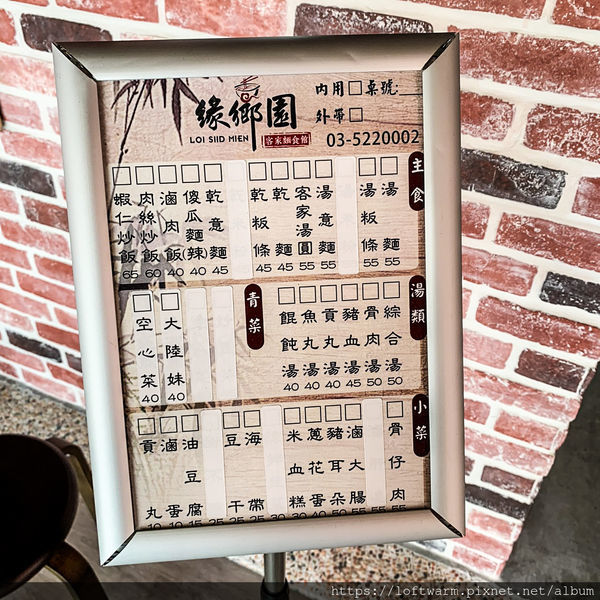 緣鄉園
LOI SIID MIEN
客家麵食館
內用□ 桌號:
外帶□
03-5220002
主食
湯麵 55
湯粄條 55
湯意麵 55
客家湯圓 55
乾麵 45
乾粄條 45
乾意麵 45
傻瓜麵(辣) 40
滷肉飯 40
肉絲炒飯 60
蝦仁炒飯 65
湯類
綜合湯 50
骨肉湯 50
豬血湯 45
貢丸湯 40
魚丸湯 40
餛飩湯 40
青菜
大陸妹 40
空心菜 40
小菜
骨仔肉
滷大腸
豬耳朵
蔥花蛋
米血糕
海帶
豆干
油豆腐
滷蛋
貢丸
https://loftwarm.pixnet.net/album